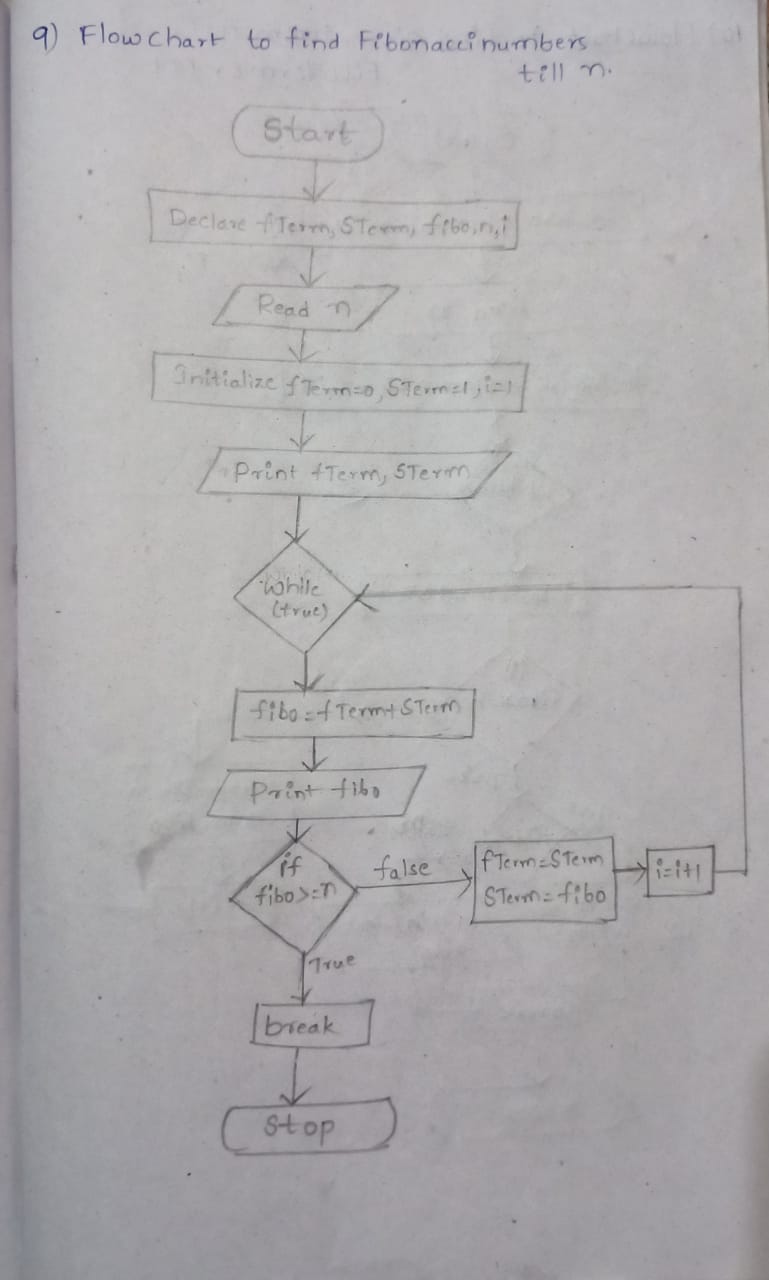 9) Flowchart to find Fibonacci numbers
till n.
Start
Declare fTerm, STerm, fibo, n, i
Read n
Initialize fTerm=0, STerm=1, i=1
Print fTerm, STerm
While
(true)
fibo=fTerm+STerm
Print fibo
if
fibo>=n
false
fTerm=STerm
STerm=fibo
i=i+1
True
break
Stop